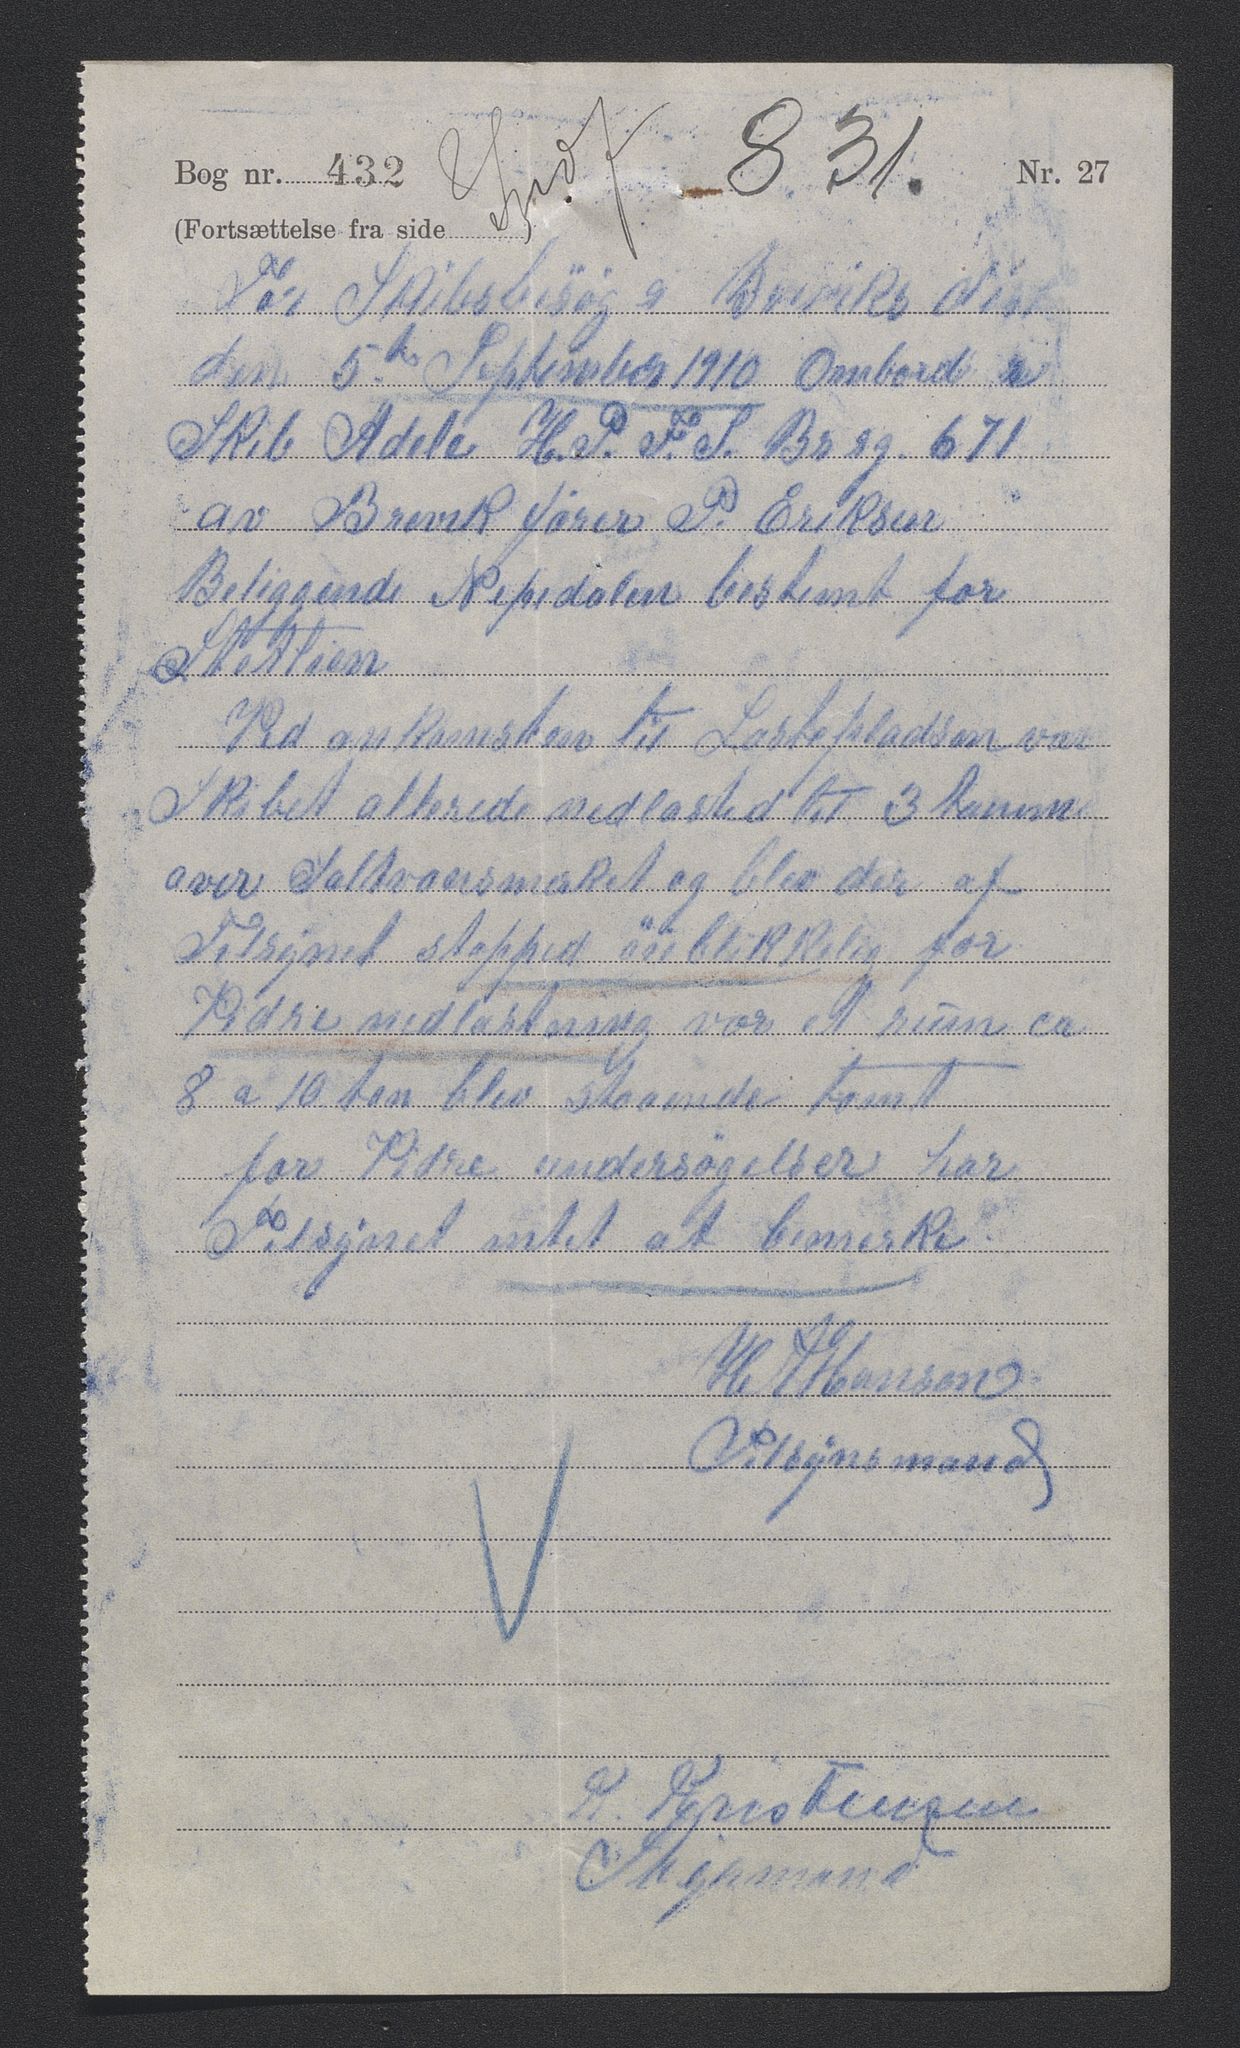 831.
Bog nr. 432 Nr. 27
(Fortsættelse fra side )
For Skibsbesøg i Breviks dist
den 5.te September 1910 Ombord i
Skib Adele H.P.F.S. Br rg. 671
av Brevik fører P. Eriksen
Beliggende bestemt for
Stettien
Ved ankomsten til Lastepladsen var
Skibet allerede nedlasted til 3 tomm
over Saltvansmerket og blev der af
Tilsynet stopped öieblikkelig for
Vidre nedlastning vor et rüm ca
8 a 10 ton blev staaende tomt
for Vidre undersøgelser har
Tilsynet intet at bemerke.
H Hanson
Tilsynsmand
K. Kristensen
Styrmand